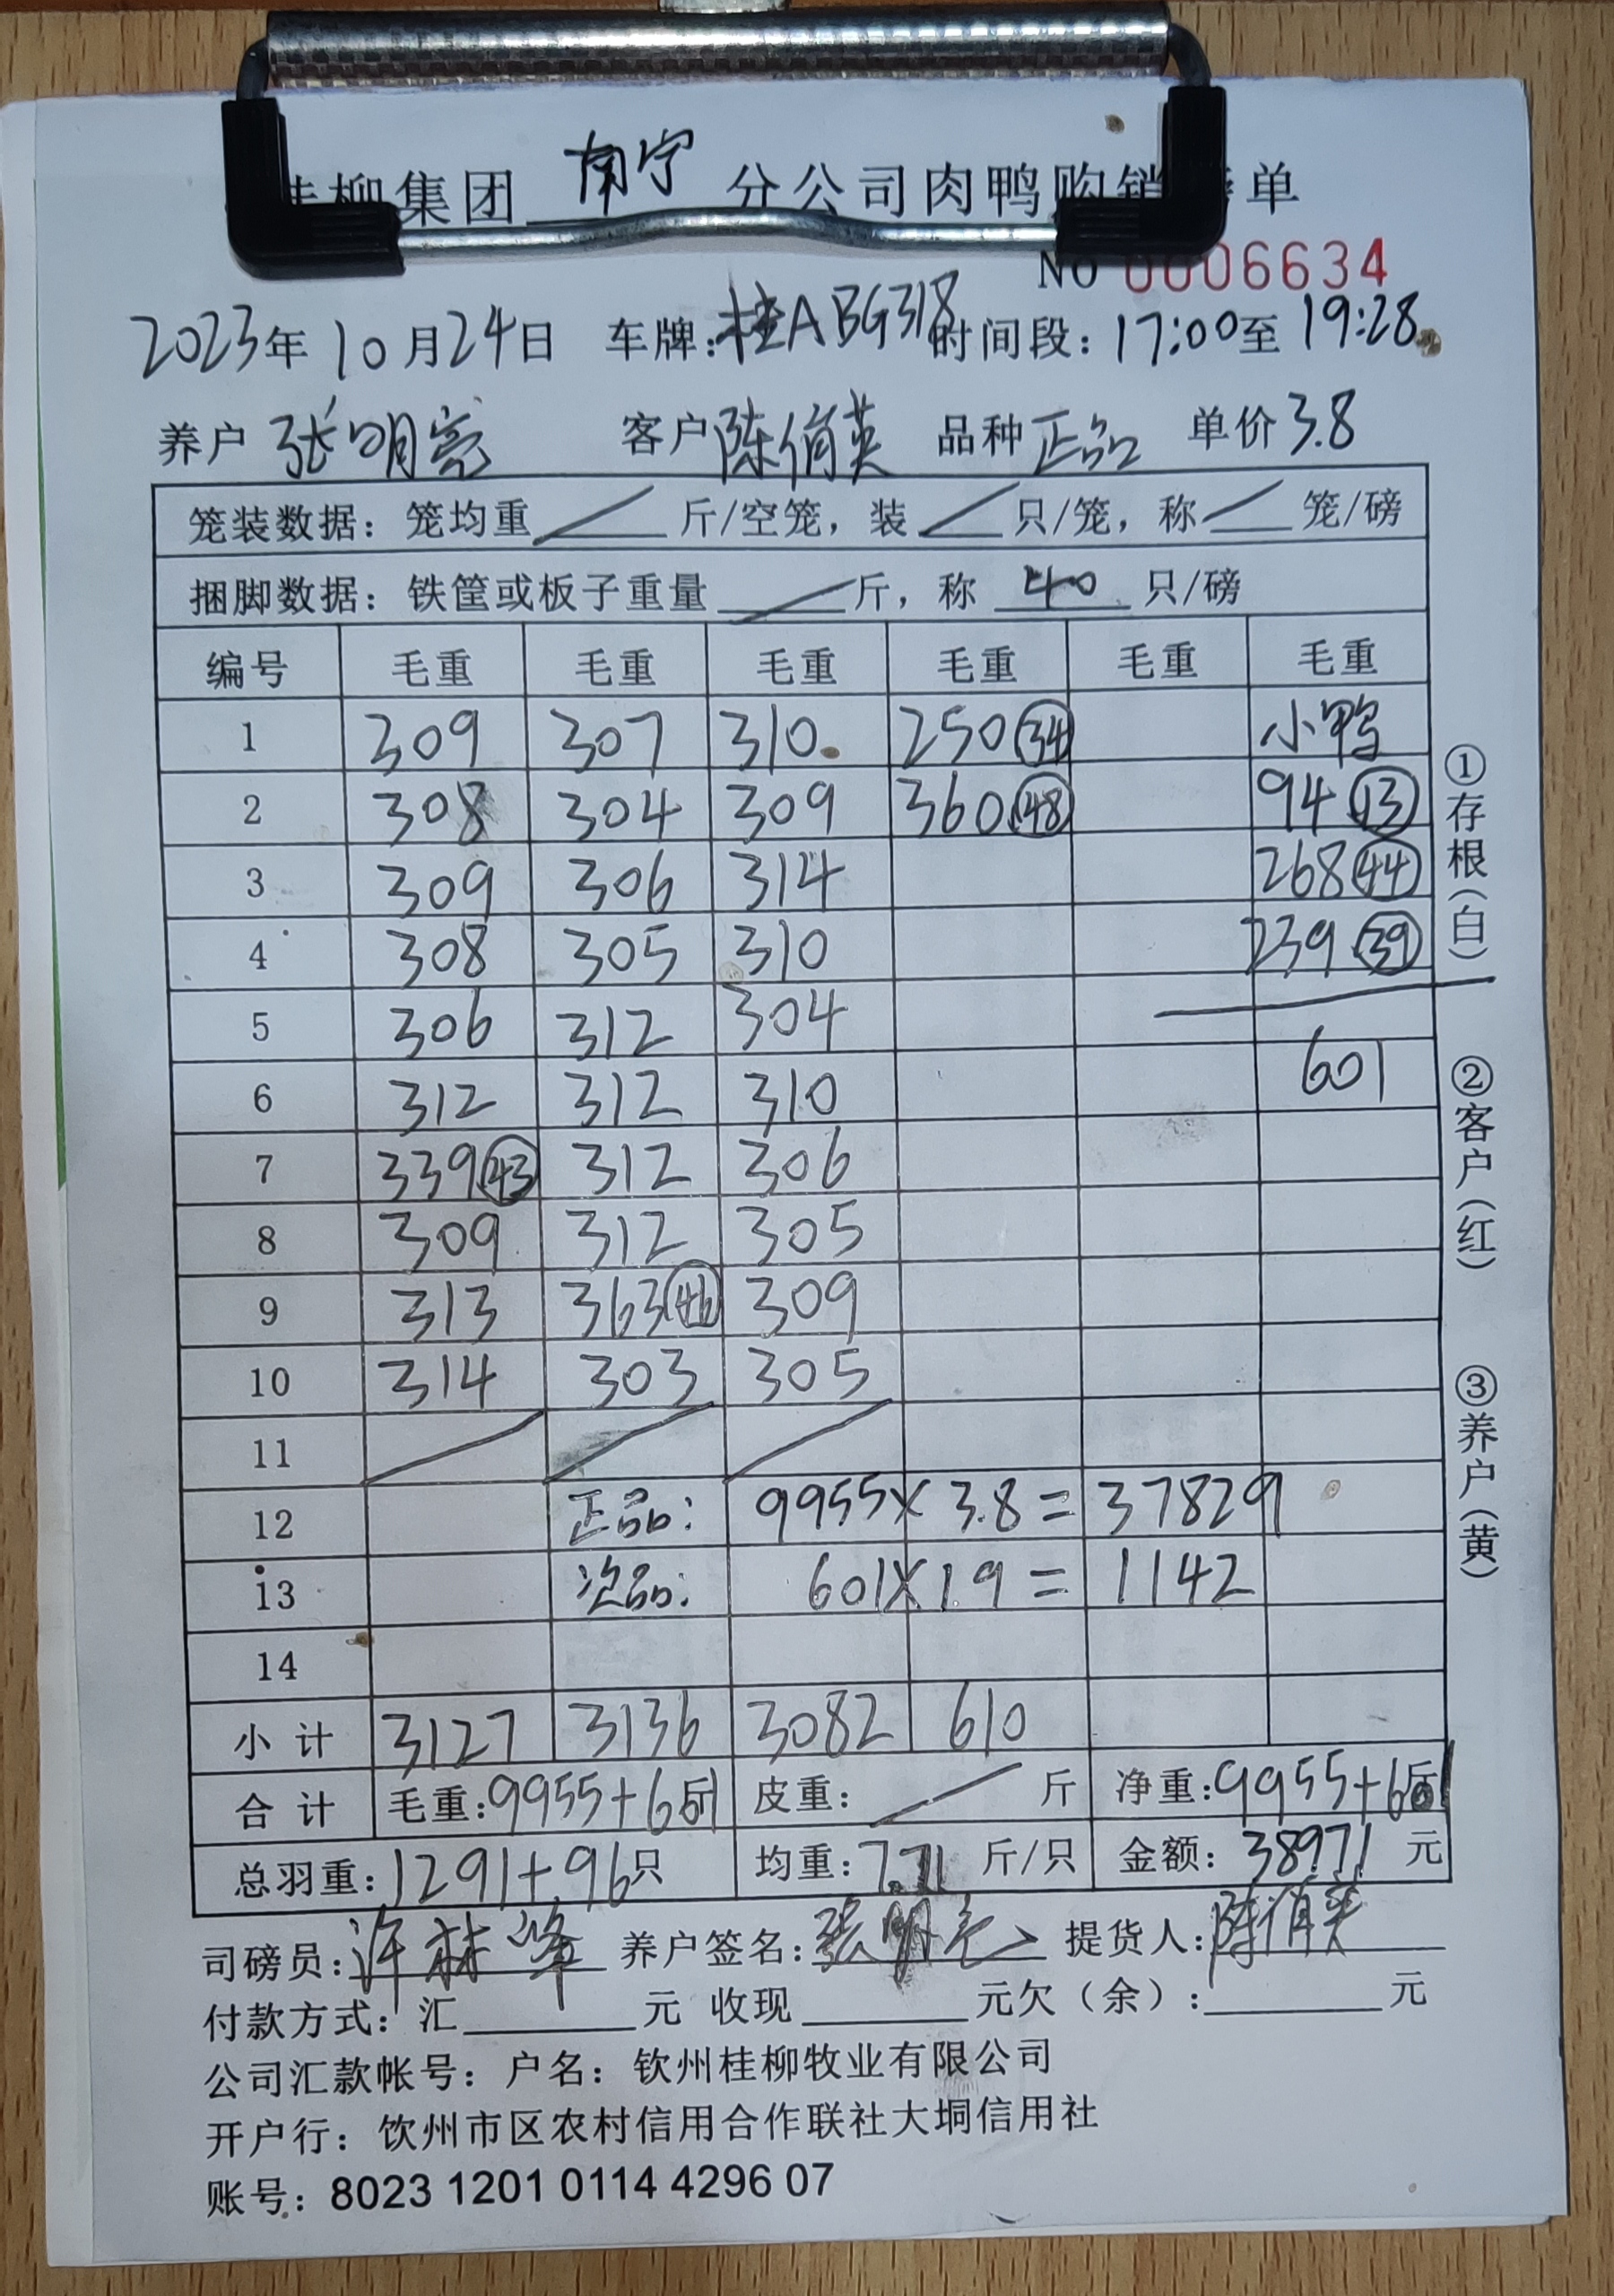 桂柳集团 南宁 分公司肉鸭购销磅单
NO 0006634
2023年10月24日 车牌:桂ABG318 时间段:17:00至19:28
养户 张明亮 客户 陈俏英 品种 正品 单价 3.8
笼装数据:笼均重 / 斤/空笼,装 / 只/笼,称 / 笼/磅
捆脚数据:铁筐或板子重量 / 斤,称 40 只/磅
编号 毛重 毛重 毛重 毛重 毛重 毛重
1 309 307 310 250 34 小鸭
2 308 304 309 360 48 94 13
3 309 306 314 268 44
4 308 305 310 239 39
5 306 312 304
6 312 312 310 601
7 339 43 312 306
8 309 312 305
9 313 363 46 309
10 314 303 305
11 / / /
12 正品: 9955×3.8=37829
13 次品: 601×1.9=1142
14
小计 3127 3136 3082 610
合计 毛重:9955+601斤 皮重: / 斤 净重:9955+601斤
总羽重:1291+96只 均重:7.71斤/只 金额:38971元
司磅员:许林峰 养户签名:张明亮 提货人:陈俏英
付款方式:汇______元 收现______元欠(余):______元
公司汇款帐号:户名:钦州桂柳牧业有限公司
开户行:钦州市区农村信用合作联社大垌信用社
账号:8023 1201 0114 4296 07
①存根(白)
②客户(红)
③养户(黄)